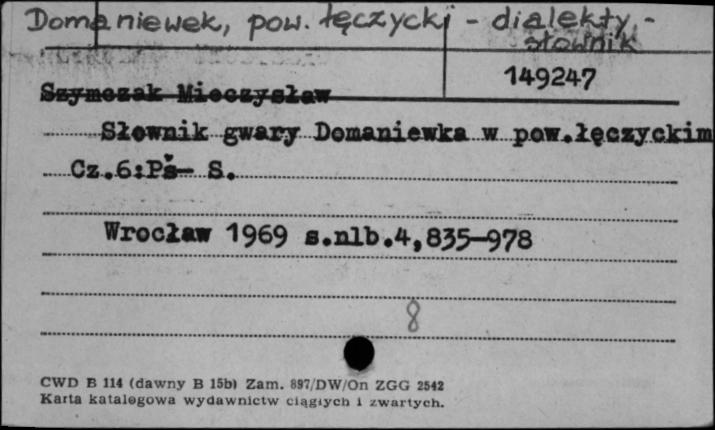 Domaniewek, pow. łęczycki - dialekty -
słownik
149247
Szymczak Mieczysław
Słownik gwary Domaniewka w pow.łęczyckim
Cz.6:Pś- S.
Wrocław 1969 s.nlb.4,835-978
8
CWD B 114 (dawny B 15b) Zam. 897/DW/On ZGG 2542
Karta katalogowa wydawnictw ciągłych i zwartych.